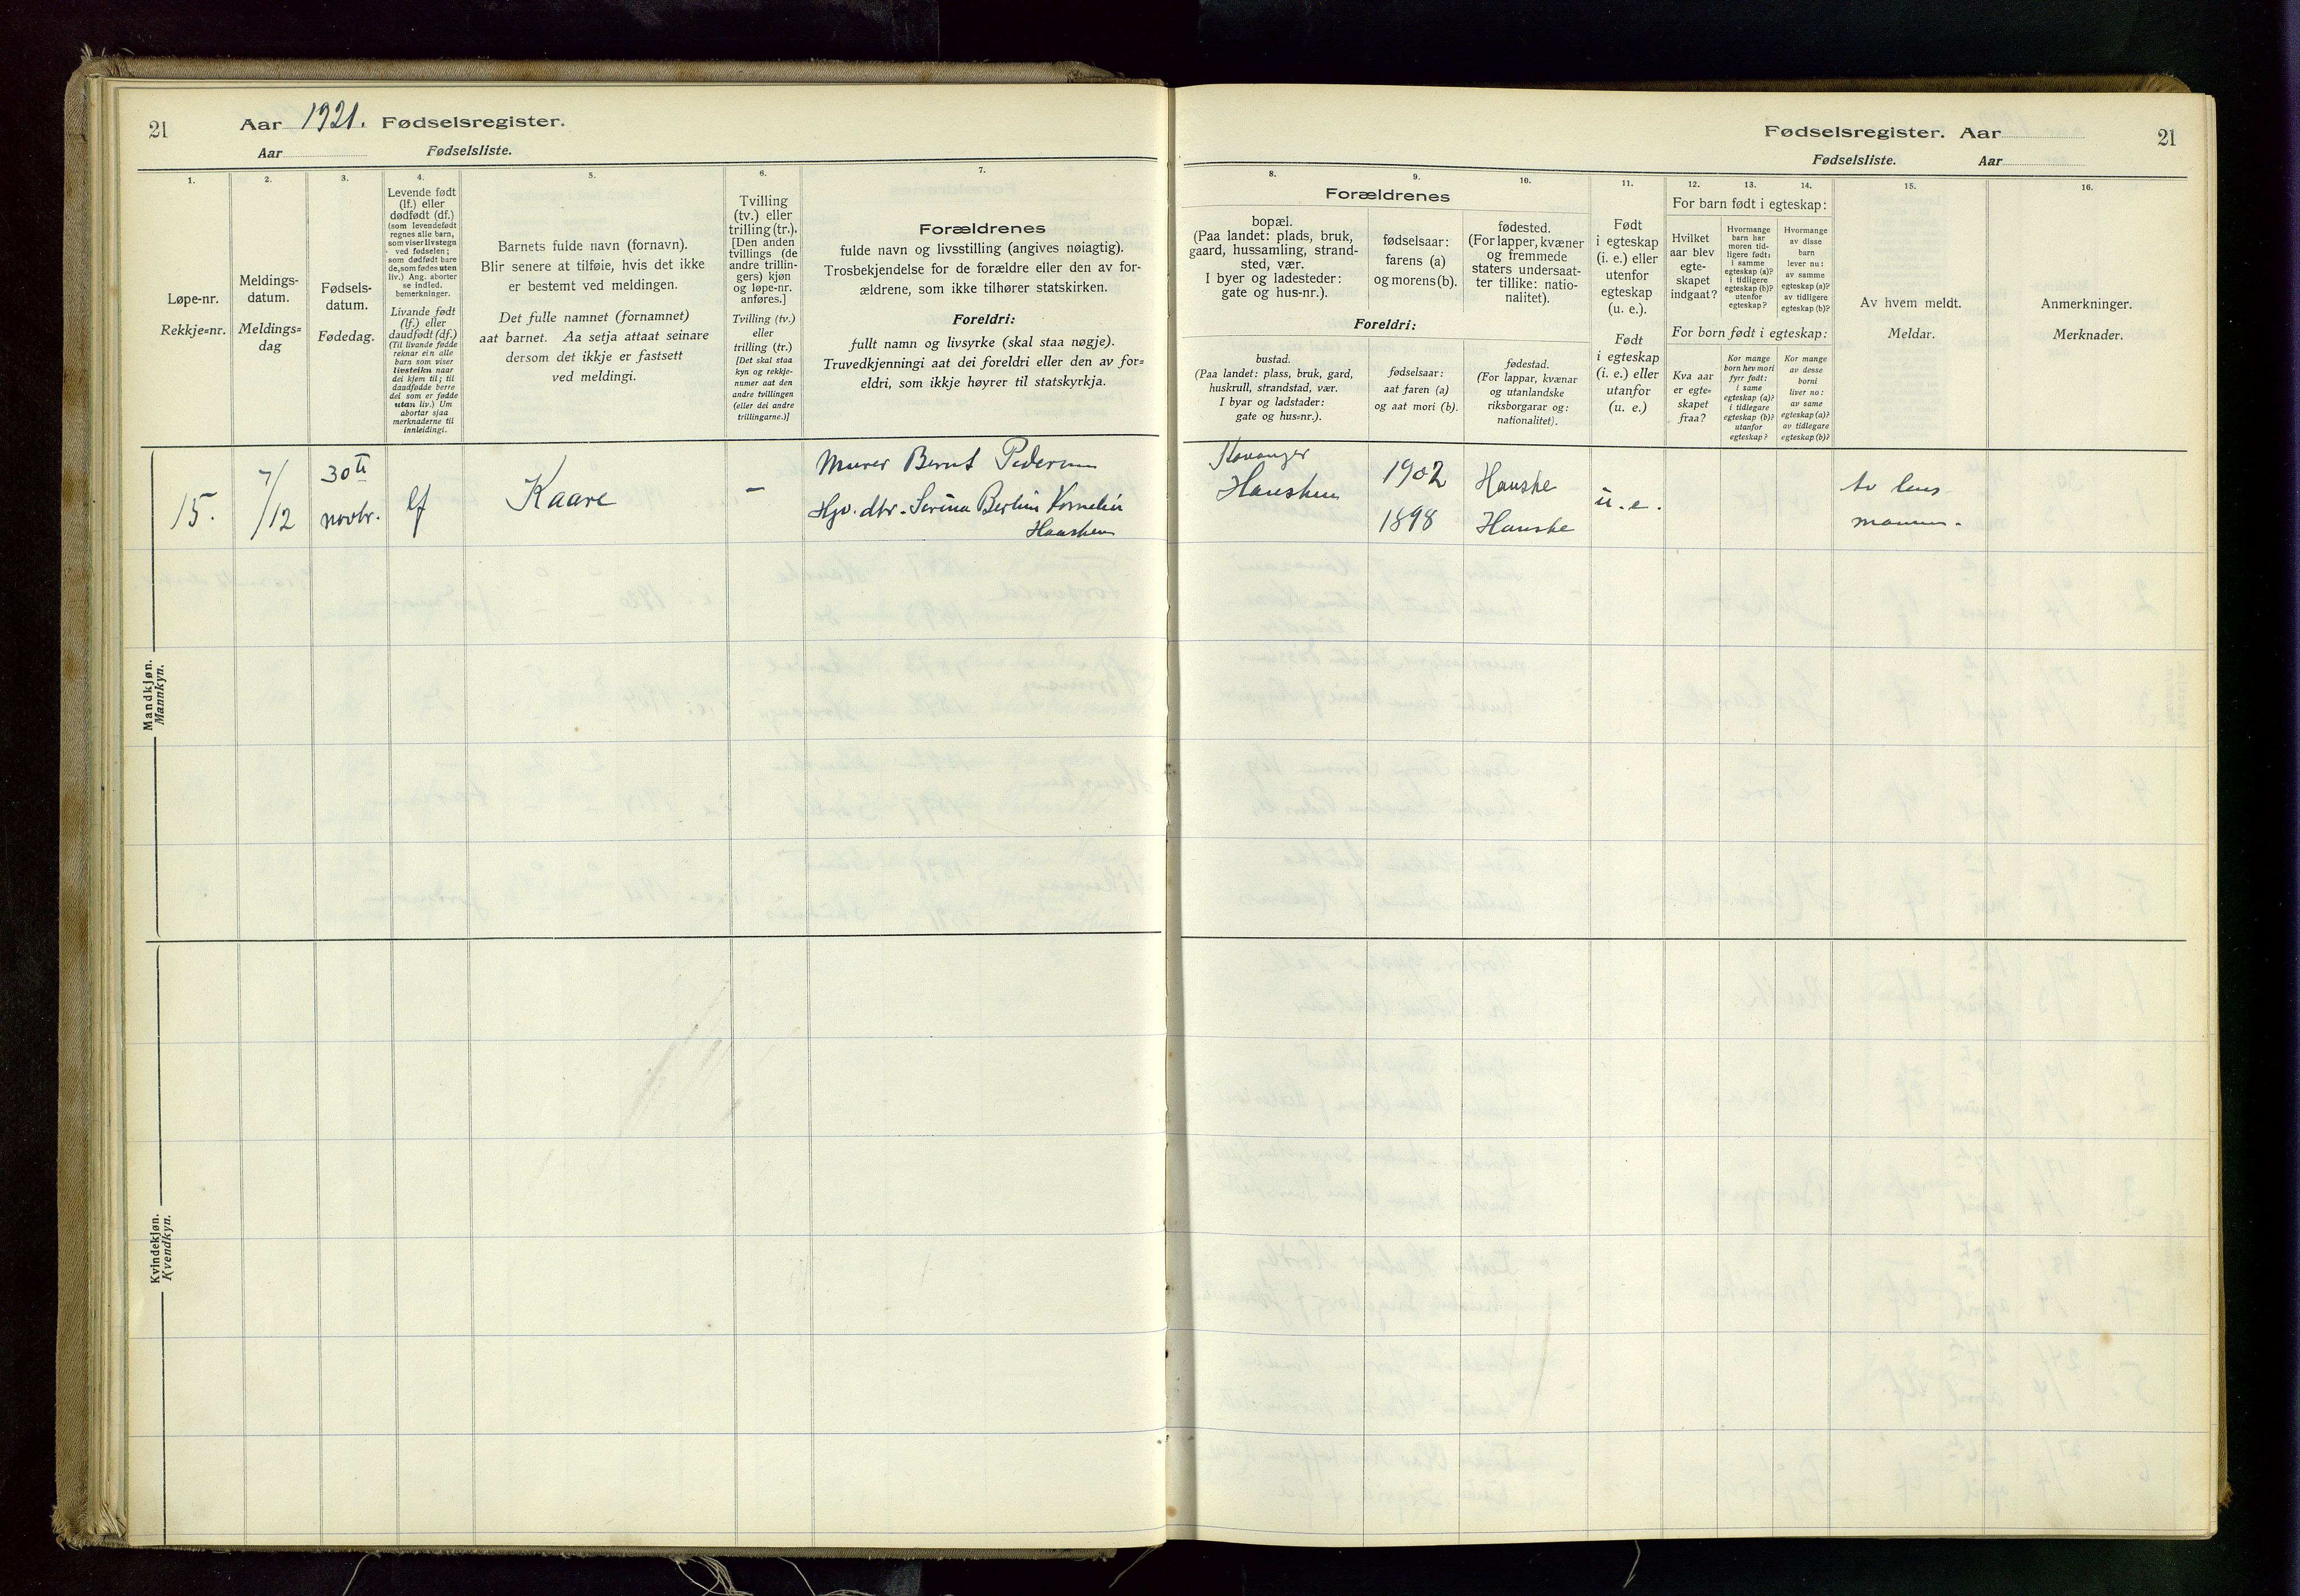 21
Aar 1921. Fødselsregister.
Aar Fødselsliste.
Fødselsregister. Aar
21
Fødselsliste. Aar
1.
Løpe-nr.
Rekkje=nr.
2.
Meldings-
datum.
Meldings=
dag
3.
Fødsels-
datum.
Fødedag.
4.
Levende født
(lf.) eller
dødfødt (df.)
(som levendefødt
regnes alle barn,
som viser livstegn
ved fødselen;
som dødfødt bare
de, som fødes uten
liv.) Ang. aborter
se indled.
bemerkninger.
Livande født
(lf.) eller
daudfødt (df.)
(Til livande fødde
reknar ein alle
barn som viser
livsteikn naar
dei kjem til; til
daudfødde berre
dei som er fødde
utan liv.) Um
abortar sjaa
merknaderne til
innleidingi.
5.
Barnets fulde navn (fornavn).
Blir senere at tilføie, hvis det ikke
er bestemt ved meldingen.
Det fulle namnet (fornamnet)
aat barnet. Aa setja attaat seinare
dersom det ikkje er fastsett
ved meldingi.
6.
Tvilling
(tv.) eller
trilling (tr.).
[Den anden
tvillings (de
andre trillin-
gers) kjøn
og løpe-nr.
anføres.]
Tvilling (tv.)
eller
trilling (tr.)
[Det skal staa
kyn og rekkje-
numer aat den
andre tvillingen
(eller dei andre
trillingarne.)]
7.
Forældrenes
fulde navn og livsstilling (angives nøiagtig).
Trosbekjendelse for de forældre eller den av for-
ældrene, som ikke tilhører statskirken.
Foreldri:
fullt namn og livsyrke (skal staa nøgje).
Truvedkjenningi aat dei foreldri eller den av for=
eldri, som ikkje høyrer til statskyrkja.
8.
Forældrenes
bopæl.
(Paa landet: plads, bruk,
gaard, hussamling, strand-
sted, vær.
I byer og ladesteder:
gate og hus-nr.).
Foreldri:
bustad.
(Paa landet: plass, bruk, gard,
huskrull, strandstad, vær.
I byar og ladstader:
gate og hus=nr.).
9.
fødselsaar:
farens (a)
og morens (b).
fødselsaar:
aat faren (a)
og aat mori (b).
10.
fødested.
(For lapper, kvæner
og fremmede
staters undersaat-
ter tillike: natio-
nalitet).
fødestad.
(For lappar, kvænar
og utanlandske
riksborgarar og:
nationalitet).
11.
Født
i egteskap
(i. e.) eller
utenfor
egteskap
(u. e.).
Født
i egteskap
(i. e.) eller
utanfor
(u. e.)
12.
13.
14.
For barn født i egteskap:
Hvilket
aar blev
egte-
skapet
indgaat?
Hvormange
barn har
moren tid-
ligere født:
i samme
egteskap (a)?
i tidligere
egteskap (b)?
utenfor
egteskap?
Hvormange
av disse
barn
lever nu:
av samme
egteskap (a)?
av tidligere
egteskap (b)?
For born født i egteskap:
Kva aar
er egte=
skapet
fraa?
Kor mange
born hev mori
fyrr født:
i same
egteskap (a)?
i tidlegare
egteskap (b)?
utanfor
egteskap?
Kor mange
av desse
borni
liver no:
av same
egteskap (a)?
av tidlegare
egteskap (b)?
15.
Av hvem meldt.
Meldar.
16.
Anmerkninger.
Merknader.
Mandkjøn.
Mannkyn.
15.
7/12
30te
novbr.
lf
Kaare
–
Murer Bernt Pedersen
Hjv. dtr. Serina Bertine Kornelia
Hausken
Stavanger
Hausken
1902
1898
Hauske
Hauske
u. e.
Av lens
mannen.
Kvindekjøn.
Kvendkyn.